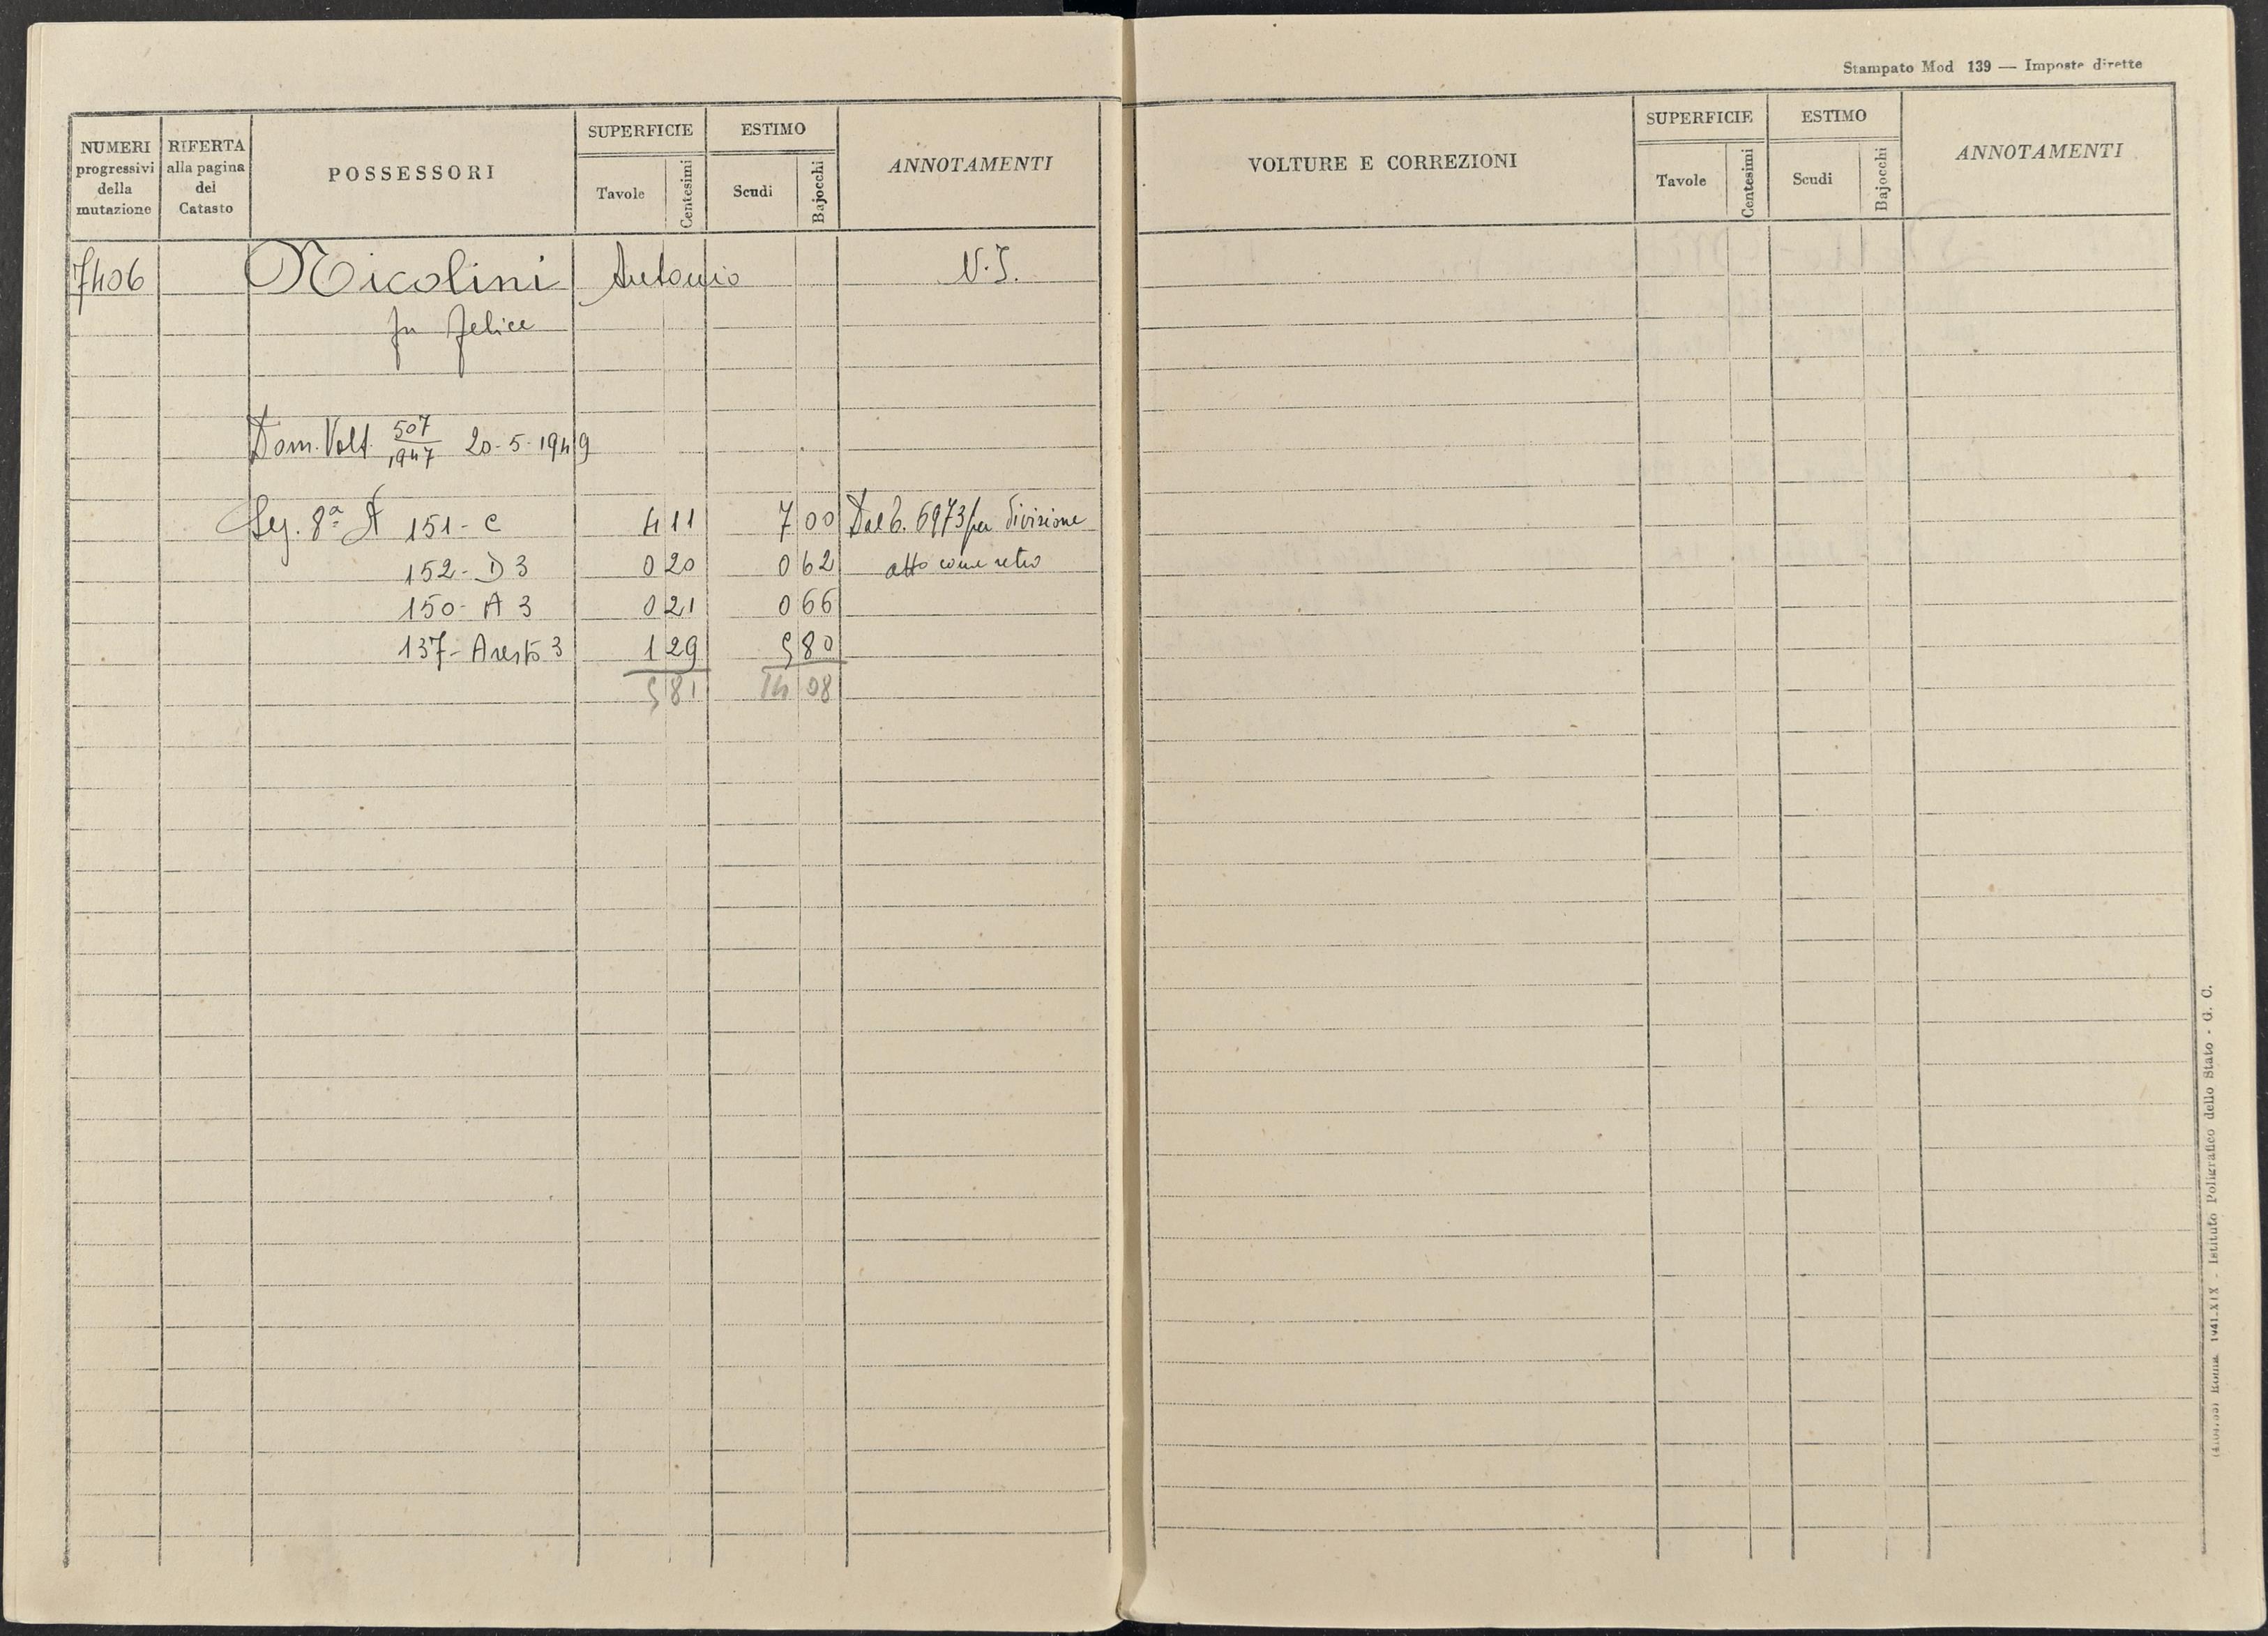 Stampato Mod 139 — Imposte dirette
NUMERI progressivi della mutazione
RIFERTA alla pagina del Catasto
POSSESSORI
SUPERFICIE
Tavole
Centesimi
ESTIMO
Scudi
Bajocchi
ANNOTAMENTI
7406 Nicolini Antonio
fu Felice
Dom. Volt. 507/1947 20-5-1949
151-C 4 11 7 00 Dal 6973 per divisione
152-D3 0 20 0 62 atto come retro
150-A3 0 21 0 66
137-Aresto 3 1 29 5 80
5 81 14 08
VOLTURE E CORREZIONI
SUPERFICIE
Tavole
Centesimi
ESTIMO
Scudi
Bajocchi
ANNOTAMENTI
Roma 1941-XIX - Istituto Poligrafico dello Stato - G. C.